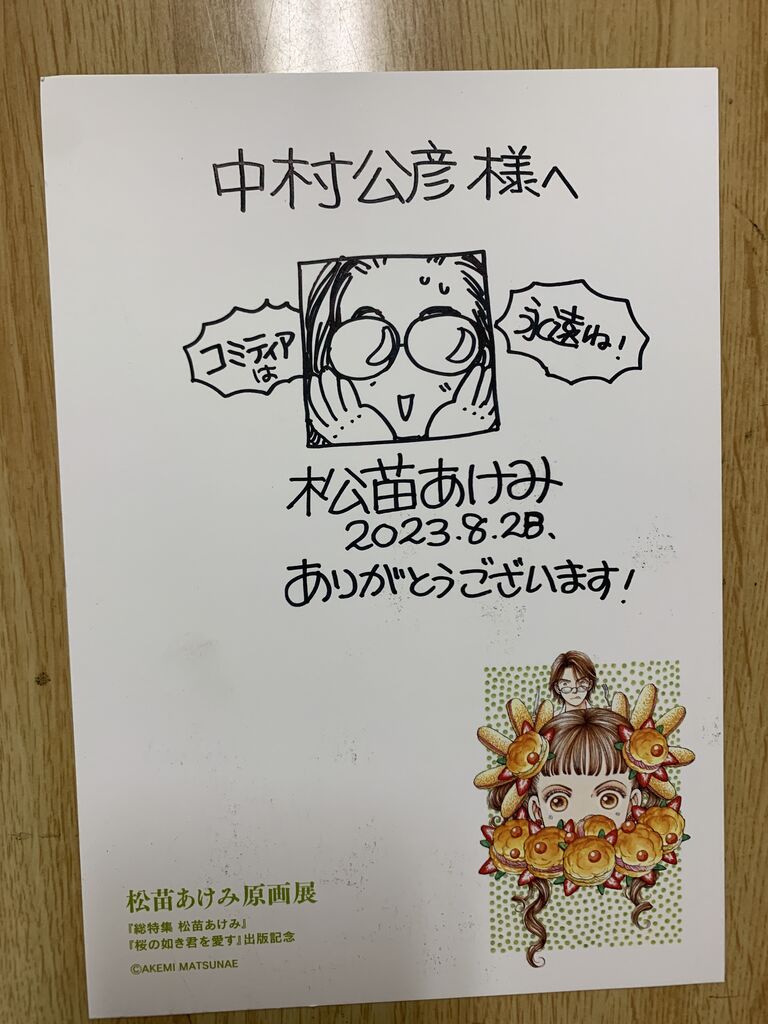 中村公彦様へ
コミティア
は
永遠ね！
松苗あけみ
2023.8.28、
ありがとうございます！
松苗あけみ原画展
『総特集 松苗あけみ』
『桜の如き君を愛す』出版記念
©AKEMI MATSUNAE